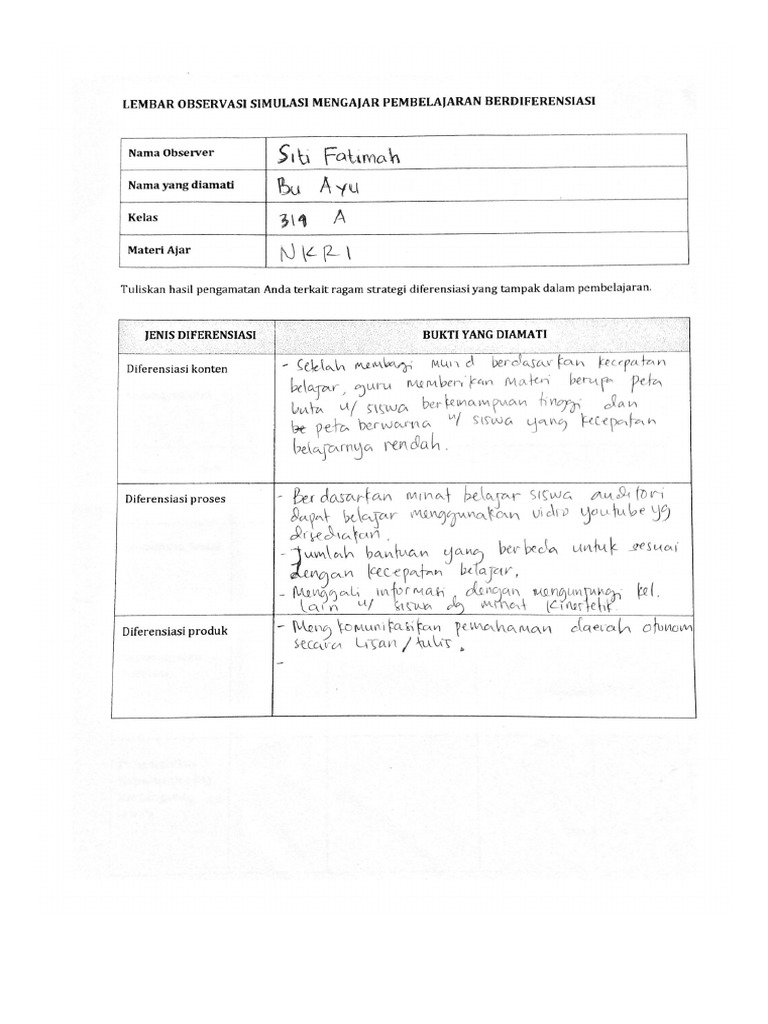 LEMBAR OBSERVASI SIMULASI MENGAJAR PEMBELAJARAN BERDIFERENSIASI
Nama Observer Siti Fatimah
Nama yang diamati Bu Ayu
Kelas 319 A
Materi Ajar NKRI
Tuliskan hasil pengamatan Anda terkait ragam strategi diferensiasi yang tampak dalam pembelajaran.
JENIS DIFERENSIASI BUKTI YANG DIAMATI
Diferensiasi konten - Setelah membagi murid berdasarkan kecepatan
belajar, guru memberikan materi berupa peta
buta u/ siswa berkemampuan tinggi dan
peta berwarna u/ siswa yang kecepatan
belajarnya rendah.
Diferensiasi proses - Berdasarkan minat belajar siswa auditori
dapat belajar menggunakan vidio youtube yg
disediakan.
- Jumlah bantuan yang berbeda untuk sesuai
dengan kecepatan belajar.
- Menggali informasi dengan mengunjungi kel.
lain u/ siswa dg minat kinestetik.
Diferensiasi produk - Mengkomunikasikan pemahaman daerah otonom
secara lisan/tulis.
-